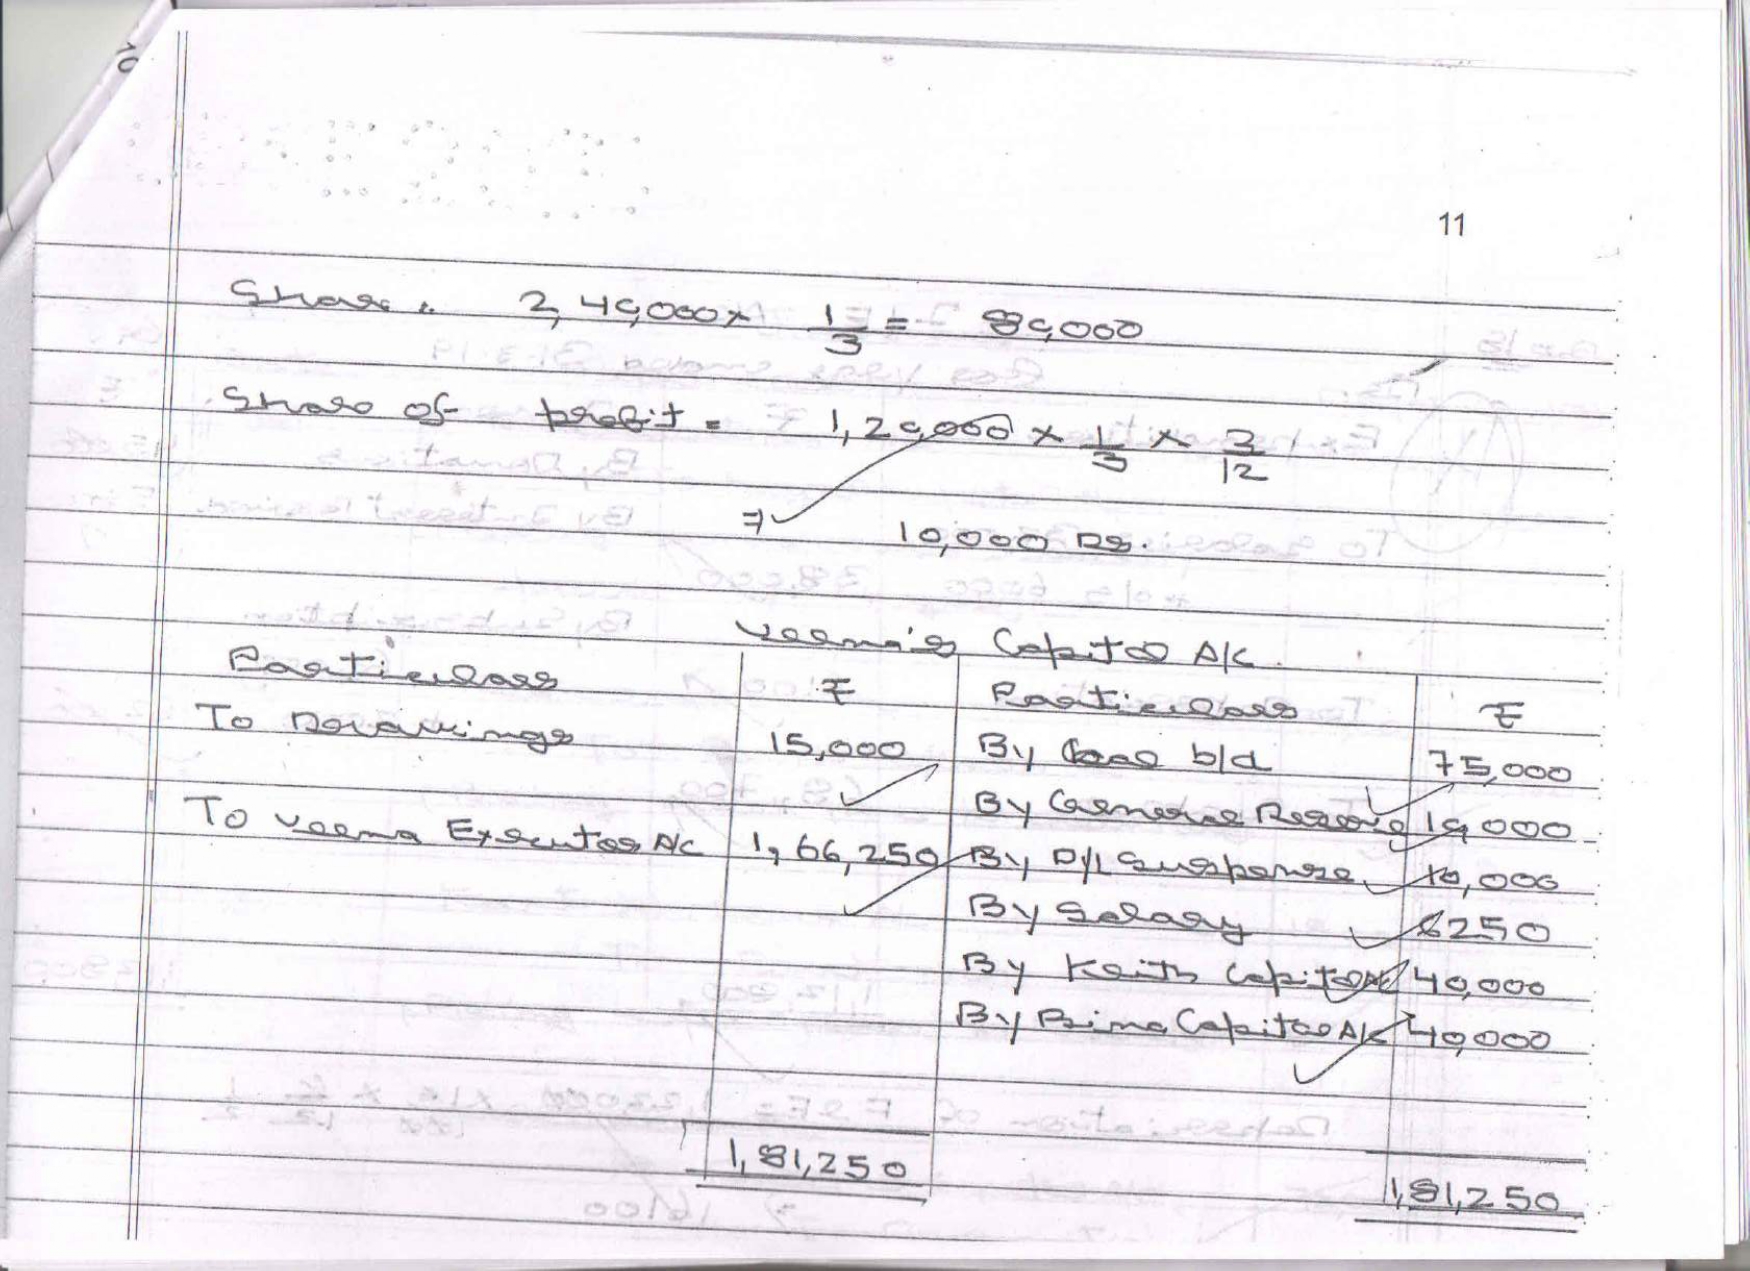 11
Share = 2,40,000 × 1/3 = 80,000
Share of profit = 1,20,000 × 1/3 × 3/12
= 10,000 Rs.
Veena's Capital A/C
Particulars ₹ Particulars ₹
To Drawings 15,000 By b/d 75,000
By General Reserve 10,000
To Veena Executor A/c 1,66,250 By P/L Suspense 10,000
By Salary 6250
By Keith Capital A/c 40,000
By Bina Capital A/c 40,000
1,81,250 1,81,250